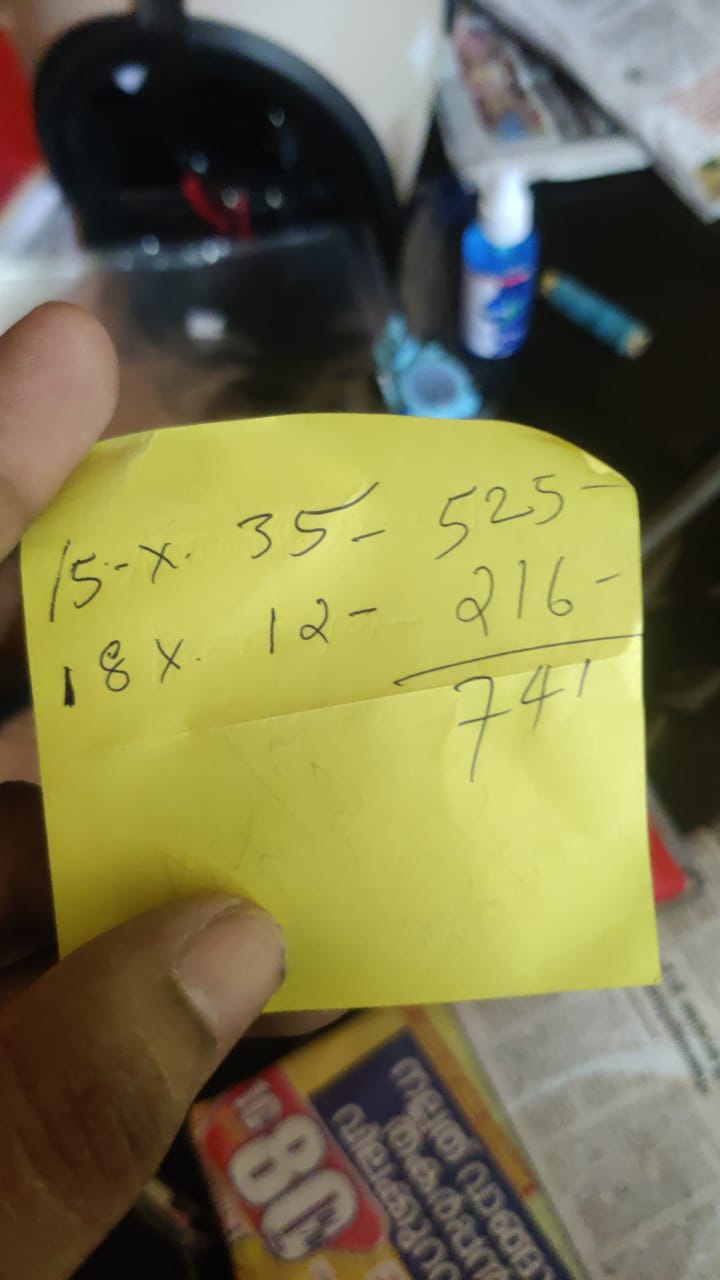 15-x. 35 - 525-
18 x. 12 - 216-
741
80